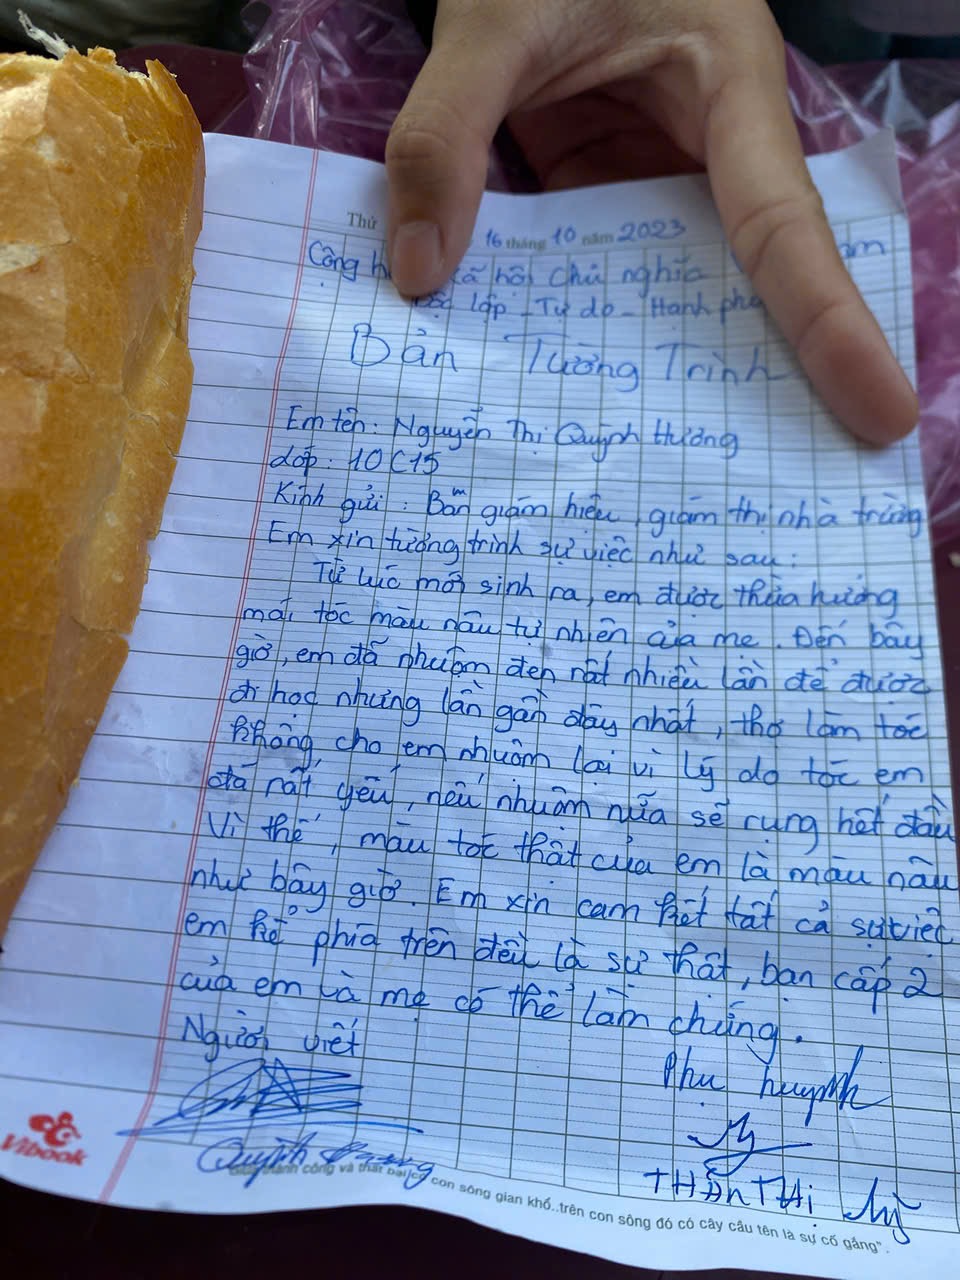 Thứ 16 tháng 10 năm 2023
Cộng xã hội Chủ nghĩa am
lập - Tự do - Hạnh
Bản Tường Trình
Em tên: Nguyễn Thị Quỳnh Hương
lớp: 10C15
Kính gửi: Ban giám hiệu, giám thị nhà trường
Em xin tường trình sự việc như sau:
Từ lúc mới sinh ra, em được thừa hưởng
mái tóc màu nâu tự nhiên của mẹ. Đến bây
giờ, em đã nhuộm đen rất nhiều lần để được
đi học nhưng lần gần đây nhất, thợ làm tóc
không cho em nhuộm lại vì lý do tóc em
đã rất yếu, nếu nhuộm nữa sẽ rụng hết đầu
Vì thế, màu tóc thật của em là màu nâu
như bây giờ. Em xin cam kết tất cả sự việc
em kể phía trên đều là sự thật, bạn cấp 2
của em và mẹ có thể làm chứng.
Người viết
Phụ huynh
Quỳnh
THÂN THỊ
Vibook
thành công và thất bại con sông gian khổ..trên con sông đó có cây cầu tên là sự cố gắng".